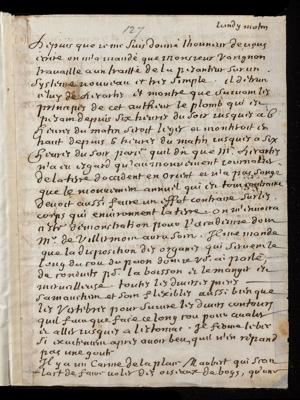 127
lundy matin
Depuis que ie me suis donné l'honneur de vous
ecrire on m'a mandé que monsieur Varignon
travaille a un traité de la pesanteur sur un
systeme nouveau et tres simple. il detruit
celuy de descartes et montre que suivant les
principes de cet autheur le plomb qui est
pesant depuis six heures du soir iusques a 6
heures du matin seroit leger et monteroit en
haut depuis 6 heures du matin iusques a six
heures du soir parce qu'il dit que M. descartes
n'a eu egard qu'au mouvement iournalier
de la terre d'occident en orient et n'a pas songé
que le mouvement annuel qui est tout contraire
devoit aussi faire un effet contraire sur les
corps qui environnent la terre. on m'
cete demonstration pour l'academie dont
Mr. de Villermont aura soin. Je me mande
que la disposition des organes qui servent le
long du cou du paon dont ie vs. ai parlé,
de conduits pr. la boisson et le manger est
merveilleuse toutes les durites pieces
s'amanchent et sont flexibles aussi bien que
les vertebres pour suivre les divers contours
qu'il faut que face ce long cou pour avaler
et aller iusques a l'estomac. Je
si exactement apres avoir beu, quil n'en repand
pas une goute.
Il y a un Carme de la place Maubert qui s'en
faire voler des oiseaux de boys, qu'une